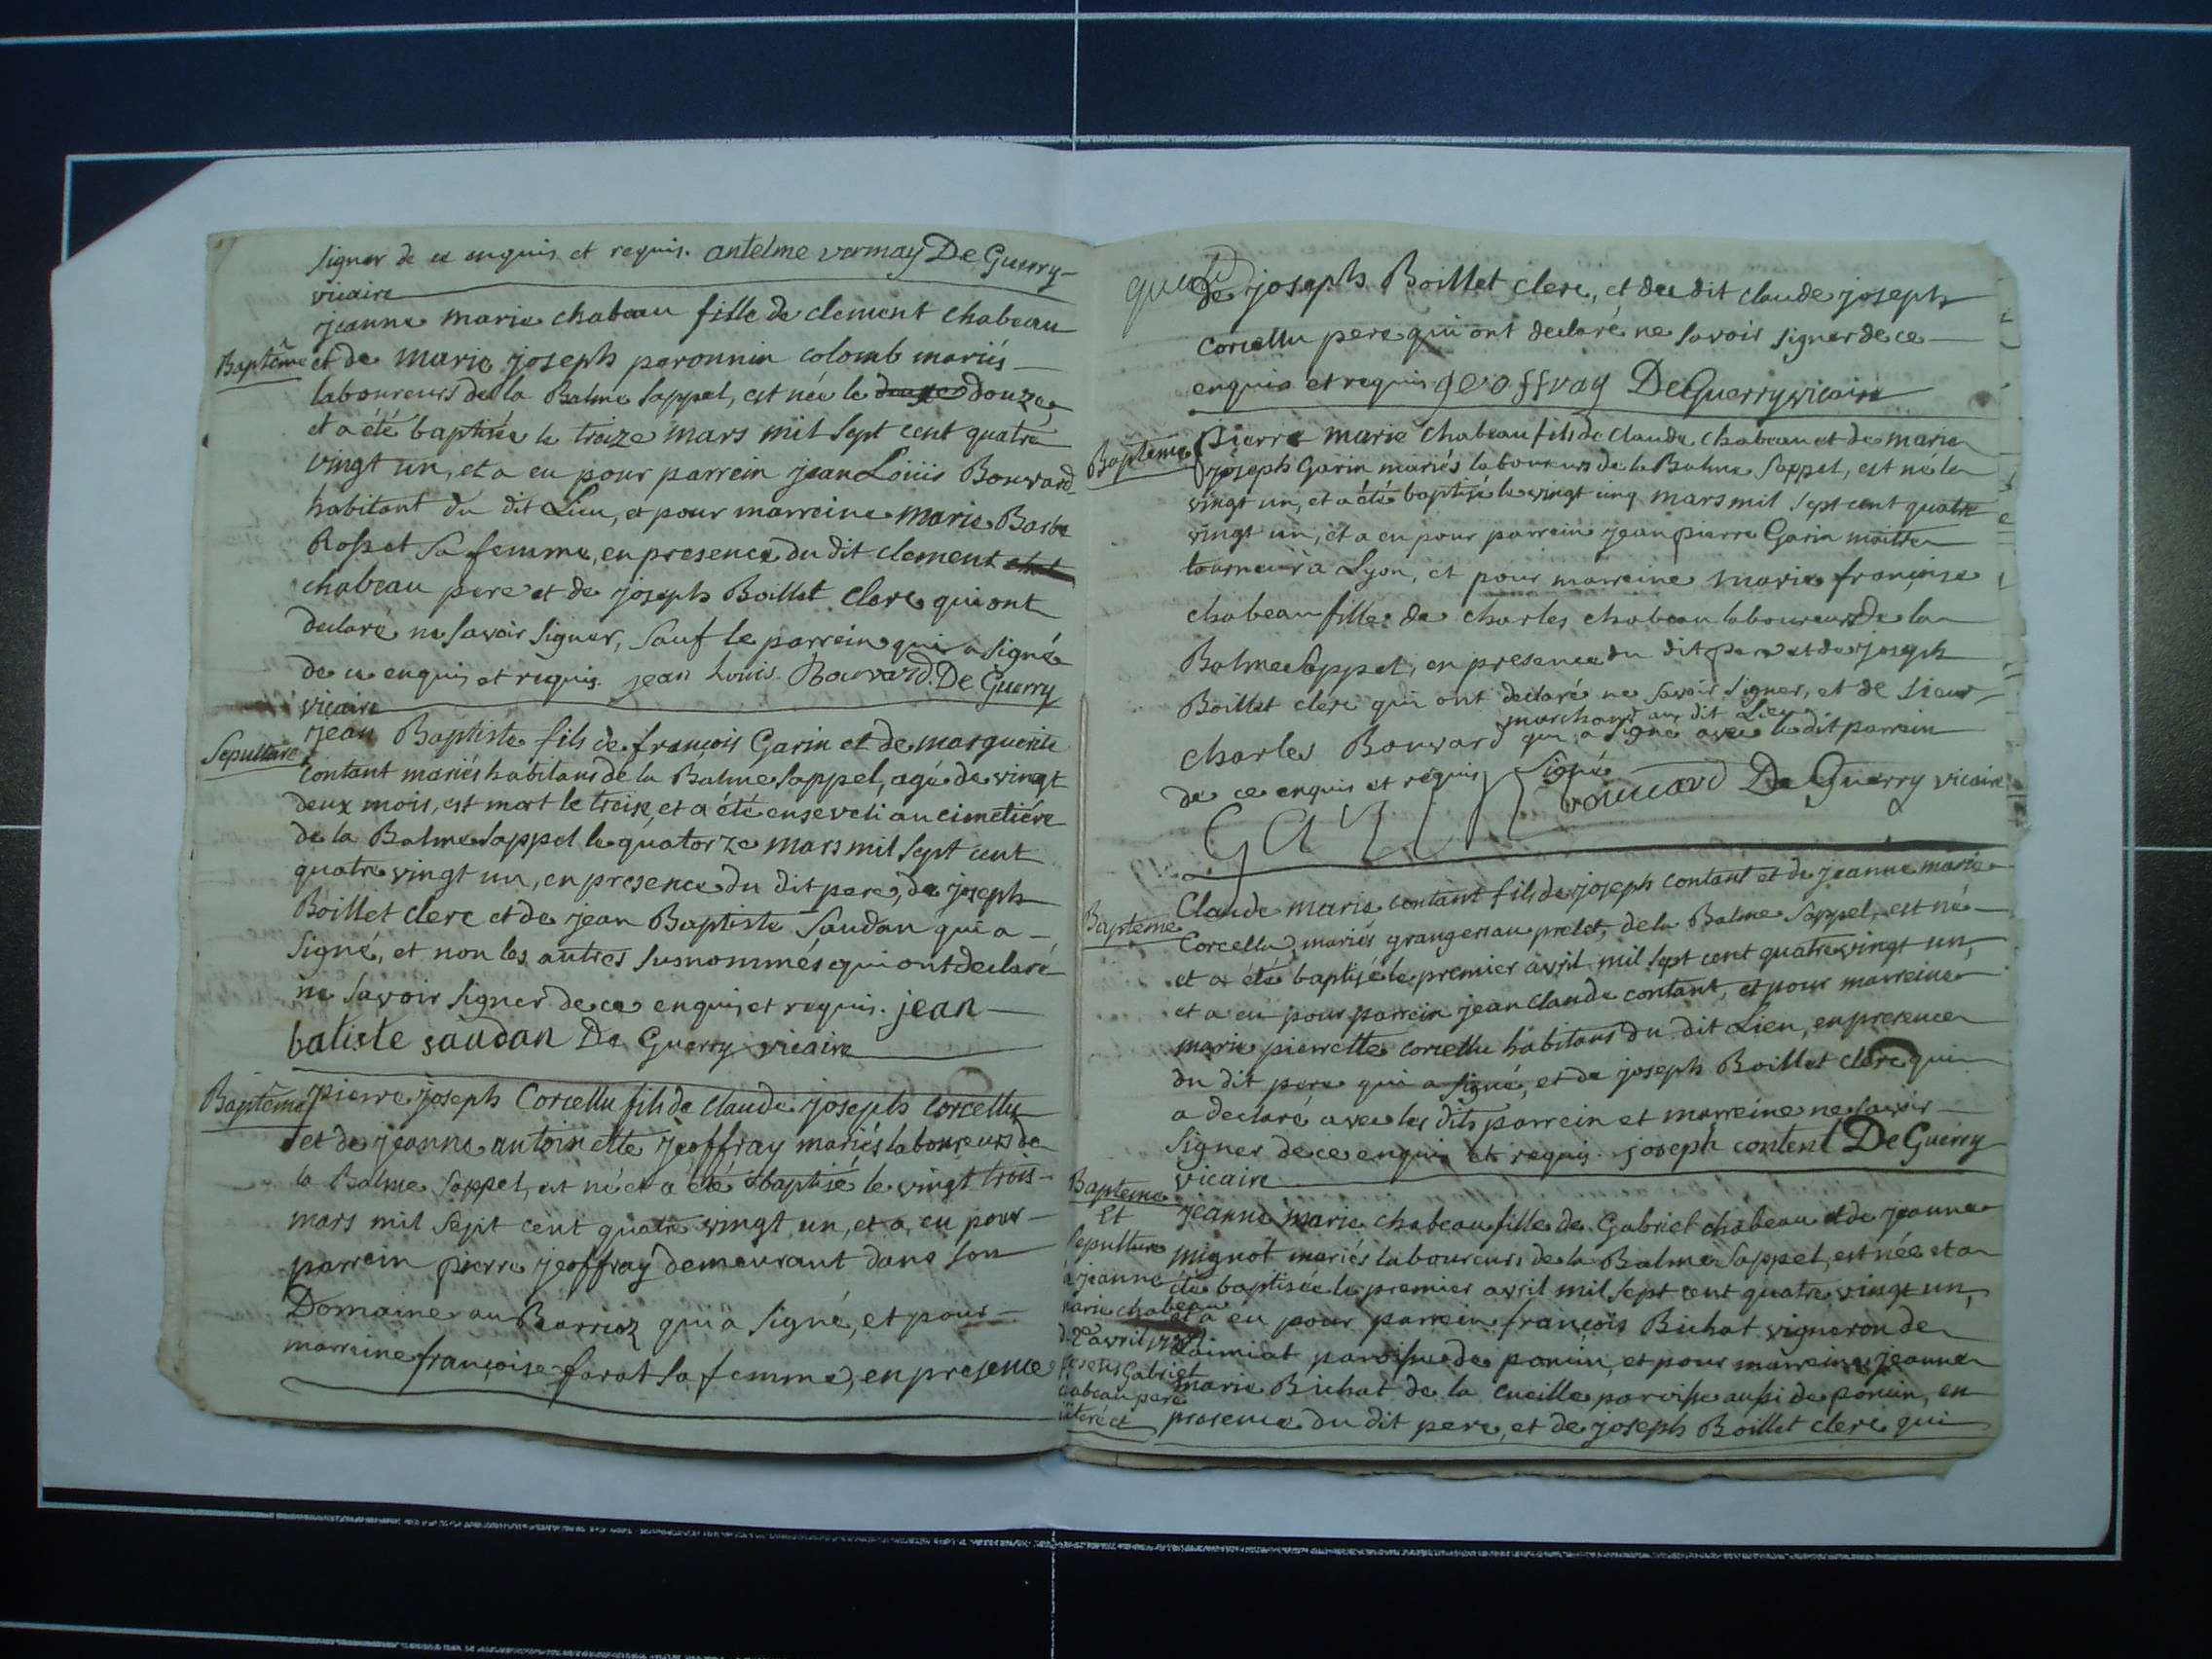 signer de ce enquis et requis. antelme vermay De Guerry
vicaire
jeanne marie chabeau fille de clement chabeau
Baptême et de marie joseph peronnin colomb mariés
laboureurs de la Balme Sappel, est née le douze
et a été baptisée le treize mars mil sept cent quatre
vingt un, et a eu pour parrein jean Louis Bouvard
habitant du dit Lieu, et pour marreine marie Barbe
Rosset sa femme, en presence du dit clement
chabeau pere et de joseph Boillet clerc qui ont
declaré ne savoir signer, sauf le parrein qui a signé
de ce enquis et requis. jean Louis Bouvard. De Guerry
vicaire
Sepulture jean Baptiste fils de françois Garin et de marguerite
contant mariés habitans de la Balme Sappel, agé de vingt
deux mois, est mort le treize, et a été enseveli au cimetiére
de la Balme Sappel le quatorze mars mil sept cent
quatre vingt un, en presence du dit pere, de joseph
Boillet clerc et de jean Baptiste Saudan qui a
signé, et non les autres susnommés qui ont declaré
ne savoir signer de ce enquis et requis. jean
batiste saudan De Guerry vicaire
Baptême pierre joseph Corcellu fils de claude joseph corcellu
et de jeanne antoinette jeoffray mariés laboureurs de
la Balme Sappel, est né et a été baptisé le vingt trois
mars mil sept cent quatre vingt un, et a eu pour
parrein pierre jeoffray demeurant dans son
Domaine au Barrioz qui a signé, et pour
marreine françoise farat sa femme, en presence
de joseph Boillet clerc, et du dit claude joseph
corcellu pere qui ont declaré ne savoir signer de ce
enquis et requis geoffray De Guerry vicaire
Baptême pierre marie chabeau fils de claude chabeau et de marie
joseph Garin mariés laboureurs de la Balme Sappel, est né le
vingt un, et a été baptisé le vingt cinq mars mil sept cent quatre
vingt un, et a eu pour parrein jean pierre Garin maitre
tourneur à Lyon, et pour marreine marie françoise
chabeau fille de charles chabeau laboureur de la
Balme Sappel, en presence du dit pere et de joseph
Boillet clerc qui ont declaré ne savoir signer, et de sieur
marchand au dit Lieu
charles Bouvard qui a signé avec le dit parrein
de ce enquis et requis signé
bouuard De Guerry vicaire
Claude marie contant fils de joseph contant et de jeanne marie
Baptême Corcellu mariés grangers au prelet, de la Balme Sappel, est né
et a été baptisé le premier avril mil sept cent quatre vingt un,
et a eu pour parrein jean claude contant, et pour marreine
marie pierrette corcellu habitans du dit Lieu, en presence
du dit pere qui a signé, et de joseph Boillet clerc qui
a declaré avec les dits parrein et marreine ne savoir
signer de ce enquis et requis. joseph content De Guerry
vicaire
Baptême
et
sepulture
jeanne
marie chabeau
avril
Gabriel
chabeau pere
jeanne marie chabeau fille de Gabriel chabeau et de jeanne
mignot mariés laboureurs de la Balme Sappel, est née et a
été baptisée le premier avril mil sept cent quatre vingt un,
et a eu pour parrein françois Bichat vigneron de
paroisse de poncin, et pour marreine jeanne
marie Bichat de la cueille paroisse aussi de poncin, en
presence du dit pere, et de joseph Boillet clerc qui